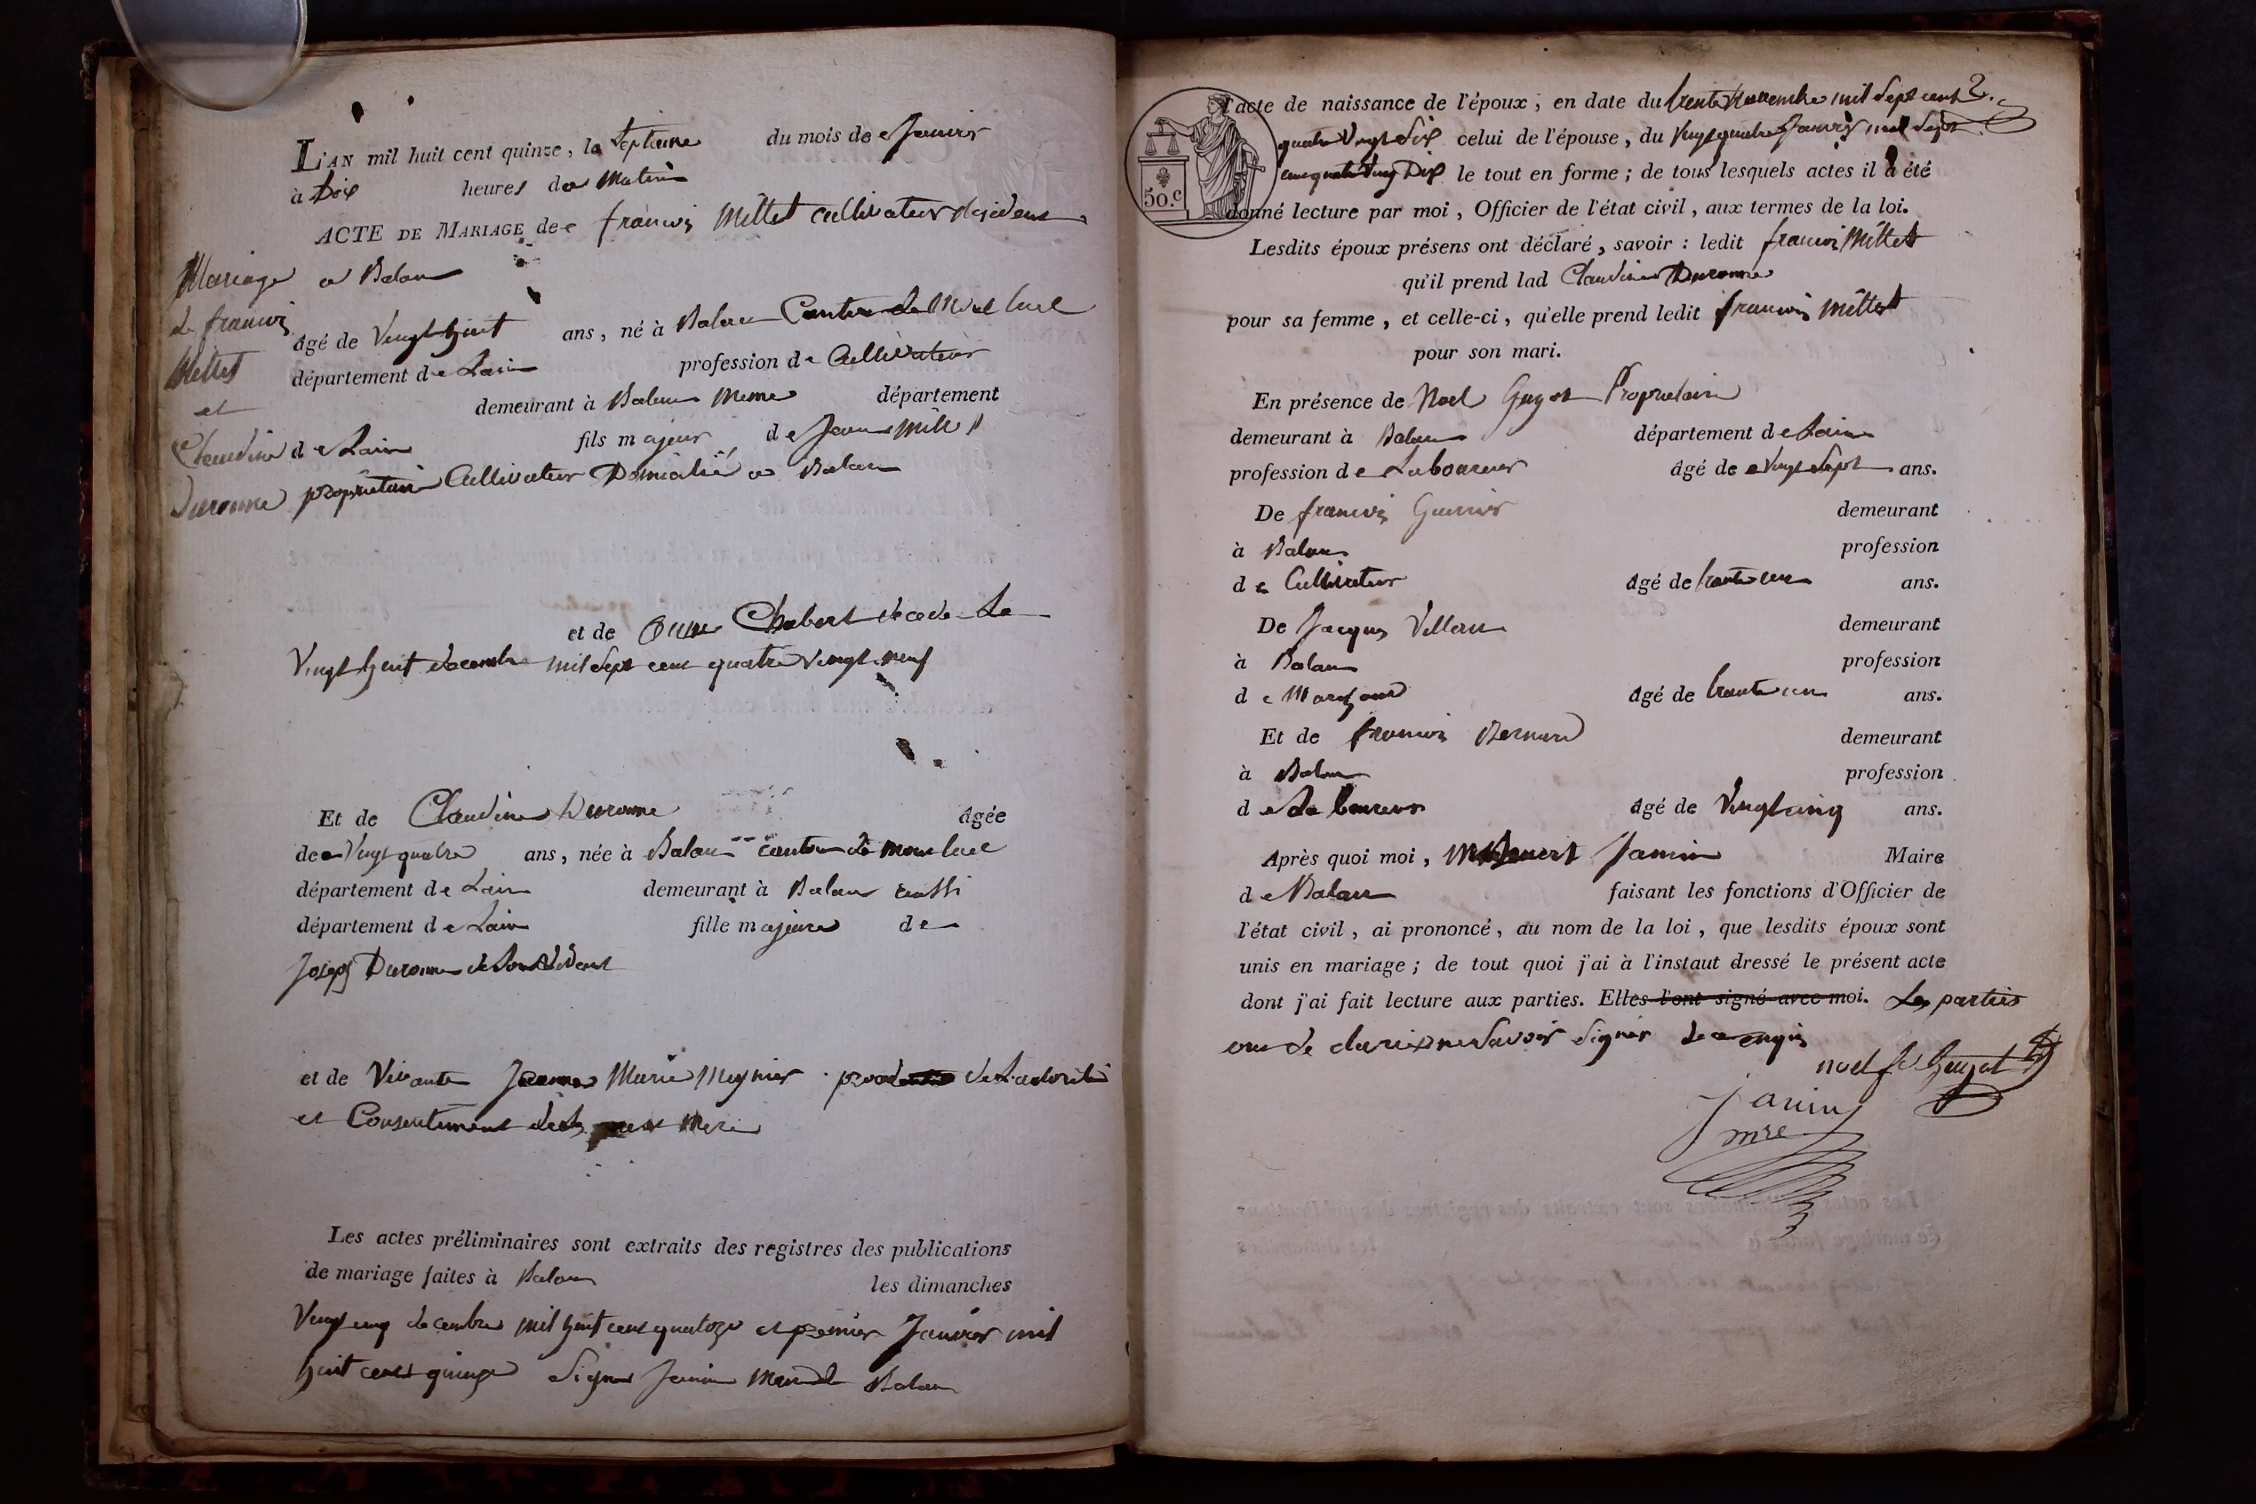 L'AN mil huit cent quinze, le septieme du mois de Janvier
à Dix heures du Matin
ACTE DE MARIAGE de francois Mettet cultivateur residant
a Balan
Mariage
de francois
Mettet
et
Claudine
Duronne
âgé de Vingt huit ans, né à Balan Canton de Montluel
département de Lain profession de Cultivateur
demeurant à Balan meme département
de Lain fils majeur de Jean
proprietaire Cultivateur Domicilié a Balan
et de Anne Chabert decede Le
Vingt huit decembre mil sept cent quatre vingt neuf
Et de Claudine Duronne âgée
de Vingt quatre ans, née à Balan canton de montluel
département de Lain demeurant à Balan aussi
département de Lain fille majeure de
Joseph Duronne
et de Vivante Jeanne Marie Meynier de Lautorité
et Consentement mere
Les actes préliminaires sont extraits des registres des publications
de mariage faites à Balan les dimanches
Vingt cinq decembre mil huit cent quatorze et premier Janvier mil
huit cent quinze Signé Janin Balan
50.c
l'acte de naissance de l'époux, en date du trente novembre mil sept cent
quatre Vingt Six celui de l'épouse, du Vingt quatre Janvier mil sept
cent quatre Vingt Dix le tout en forme; de tous lesquels actes il a été
donné lecture par moi, Officier de l'état civil, aux termes de la loi.
Lesdits époux présens ont déclaré, savoir : ledit francois Mettet
qu'il prend lad Claudine Duronne
pour sa femme, et celle-ci, qu'elle prend ledit francois Mettet
pour son mari.
En présence de Noel Guyot Proprietaire
demeurant à Balan département de Lain
profession de Laboureur âgé de Vingt Sept ans.
De francois demeurant
à Balan profession
de Cultivateur âgé de trente un ans.
De Jacques demeurant
à Balan profession
de âgé de trente un ans.
Et de francois Bernard demeurant
à Balan profession
de Laboureur âgé de Vingt cinq ans.
Après quoi moi, Janin Maire
de Balan faisant les fonctions d'Officier de
l'état civil, ai prononcé, au nom de la loi, que lesdits époux sont
unis en mariage; de tout quoi j'ai à l'instaut dressé le présent acte
dont j'ai fait lecture aux parties. Elles l'ont signé avec moi. Les parties
ont declarés ne Savoir Signer de ce enquis
noel Guyot
Janin
mre